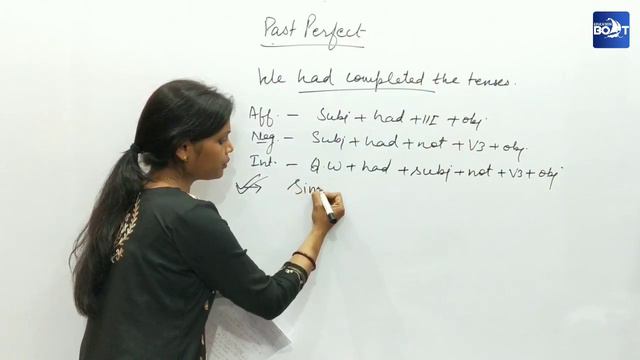 EDUCATION
BOAT
Past Perfect
We had completed the tenses.
Aff. - Subj + had + III + obj.
Neg - Subj + had + not + V3 + obj.
Int. - Q.W + had + subj + not + V3 + obj
Sim